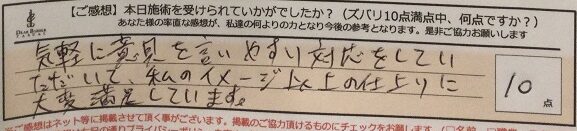 【ご感想】本日施術を受けられていかがでしたか？（ズバリ10点満点中、何点ですか？）
あなた様の率直な感想が、私達の何よりの力となり今後の参考となります。是非ご協力お願いします
気軽に意見を言いやすい対応をしてい
ただいて、私のイメージ以上の仕上りに
大変満足しています。
10
点
ご感想はネット等に掲載させて頂く事がございます。掲載のご協力頂けるものにチェックをお願いします。